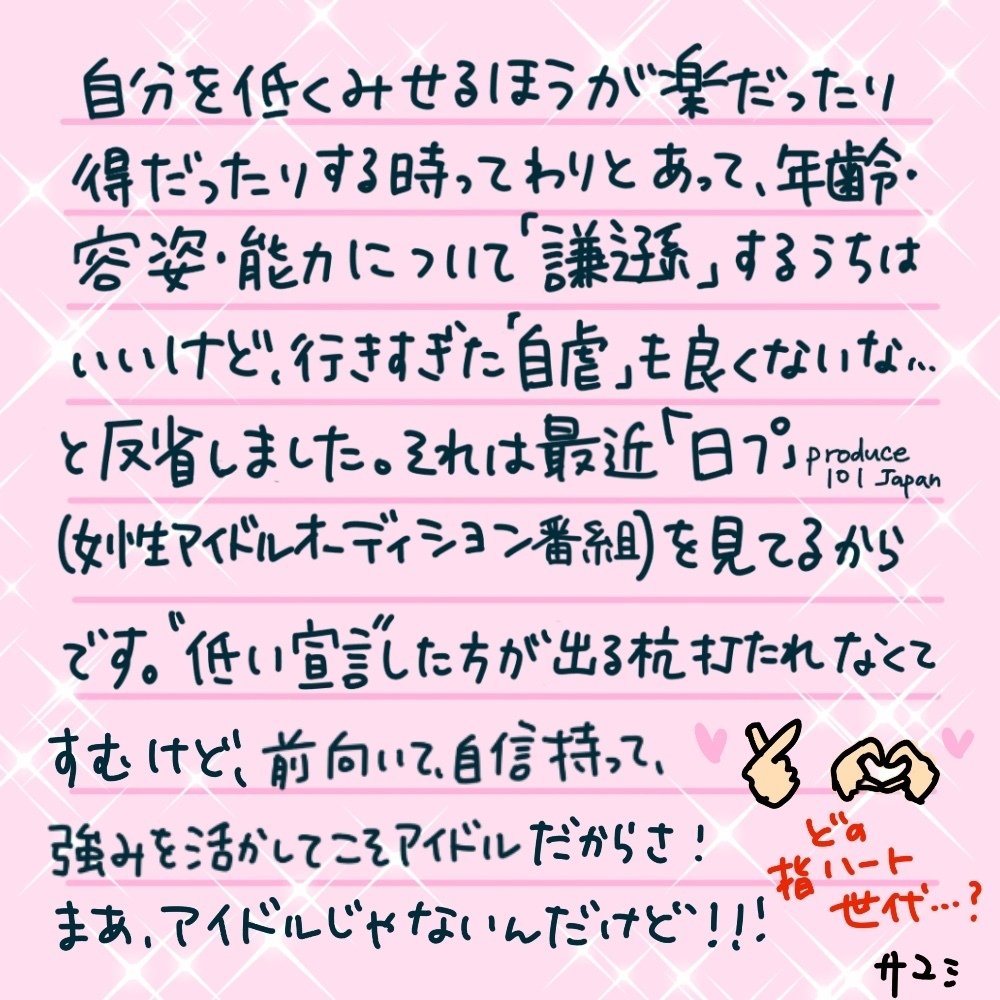 自分を低くみせるほうが楽だったり
得だったりする時ってわりとあって、年齢・
容姿・能力について「謙遜」するうちは
いいけど、行きすぎた「自虐」も良くないな…
と反省しました。それは最近「日プ」produce
101 Japan
(女性アイドルオーディション番組)を見てるから
です。"低い宣言"した方が出る杭打たれなくて
すむけど、前向いて、自信持って、
強みを活かしてこそアイドルだからさ!
まあ、アイドルじゃないんだけど!!!
どの
指ハート
世代…?
サユミ